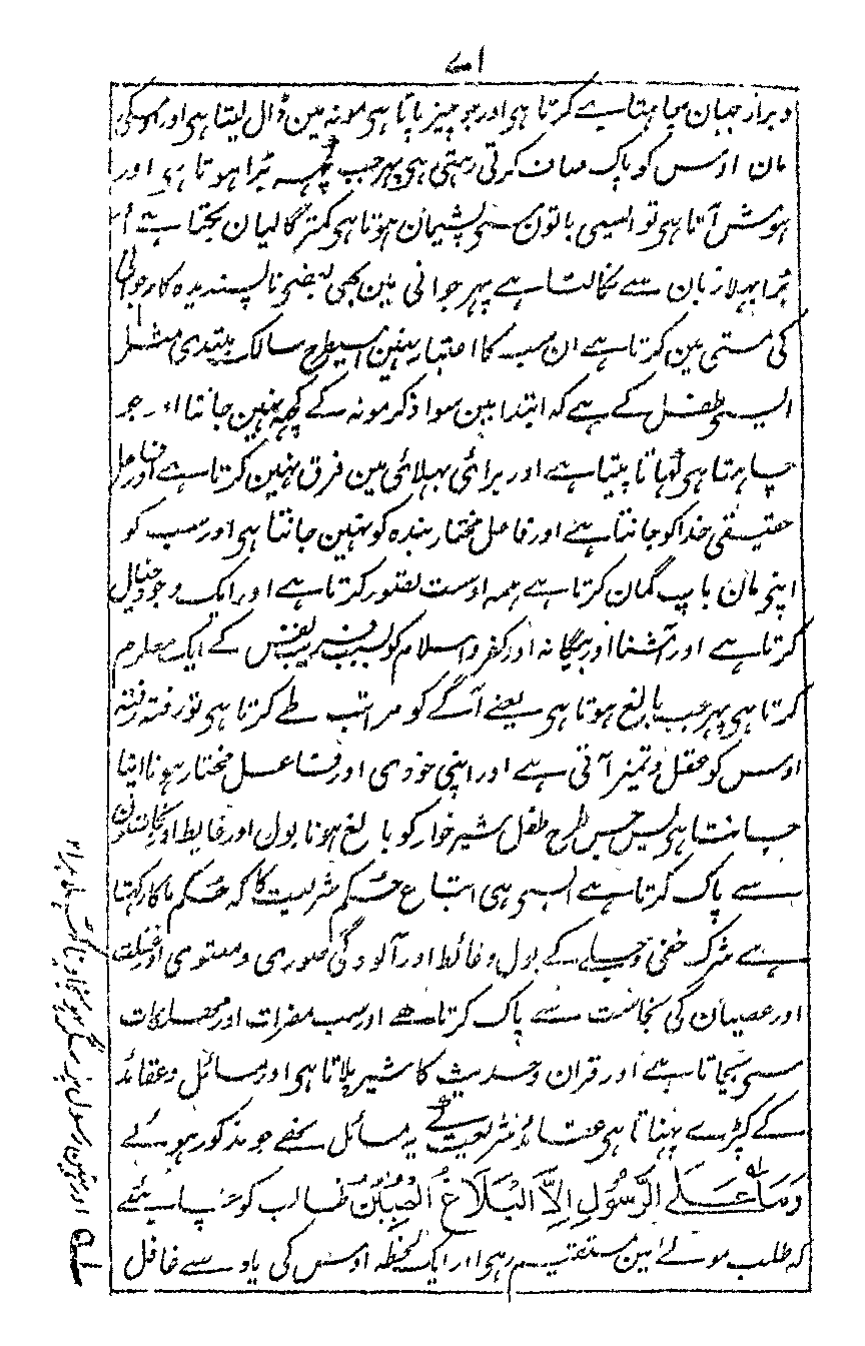 ۷۱
و براز جہان چاہتا ہے کرتا ہی اور جو چیز پاتا ہی مونہ مین ڈال لیتا ہی اور
مان اوس کو پاک صاف کرتی رہتی ہی پہر جب بڑا ہوتا ہی اور
ہوش آتا ہی تو ایسی باتون سی پشیمان ہوتا ہی کمتر گالیان بکتا ہے
برا بہلا زبان سے نکالتا ہے پہر جوانی مین بھی بعضی ناپسندیدہ کام جوانی
کی مستی مین کرتا ہے ان سب کا اعتبار نہین اسیطرح سالک مبتدی مثل
ایسی طفل کے ہے کہ ابتدا مین سوا ذکر مونہ کے کچہہ نہین جانتا اور جو
چاہتا ہی کہاتا پیتا ہے اور برائی بہلائی مین فرق نہین کرتا ہے اور فاعل
حقیقی خدا کو جانتا ہے اور فاعل مختار بندہ کو نہین جانتا ہی اور سب کو
اپنی مان باپ گمان کرتا ہے ہمہ اوست تصور کرتا ہے اور ایک وجود خیال
کرتا ہے اور آشنا اور بیگانہ اور کفر و اسلام کو بسبب فریب نفس کے ایک معلوم
کرتا ہی پہر جب بالغ ہوتا ہی یعنے آگے کو مراتب طے کرتا ہی تو رفتہ رفتہ
اوس کو عقل و تمیز آتی ہے اور اپنی خودی اور فاعل مختار ہونا اپنا
جانتا ہی پس جس طرح طفل شیر خوار کو بالغ ہونا بول اور غایط اور نجاستون
سے پاک کرتا ہے ایسی ہی اتباع حکم شریعت کا کہ حکم ما کا رکہتا
ہے شرک خفی و جلے کے بول و غائط اور آلودگی صوری و معنوی اور غفلت
اور عصیان کی نجاست سے پاک کرتا ہے اور سب مضرات اور مہلکات
سی بچاتا ہے اور قران و حدیث کا شیر پلاتا ہی اور مسائل و عقائد
کے کپڑے پہناتا ہی عقائد شریعت کے یہ مسائل تھے جو مذکور ہوئے
وَمَا عَلَے الرَّسُولِ اِلاَّ الْبَلَاغُ الْمُبِیْنُ طالب کو چاہیئے
کہ طلب مولے مین مستقیم رہی اور ایک لحظہ اوس کی یاد سے غافل
لہ اور نہین رسول پر مگر پہونچا دینا